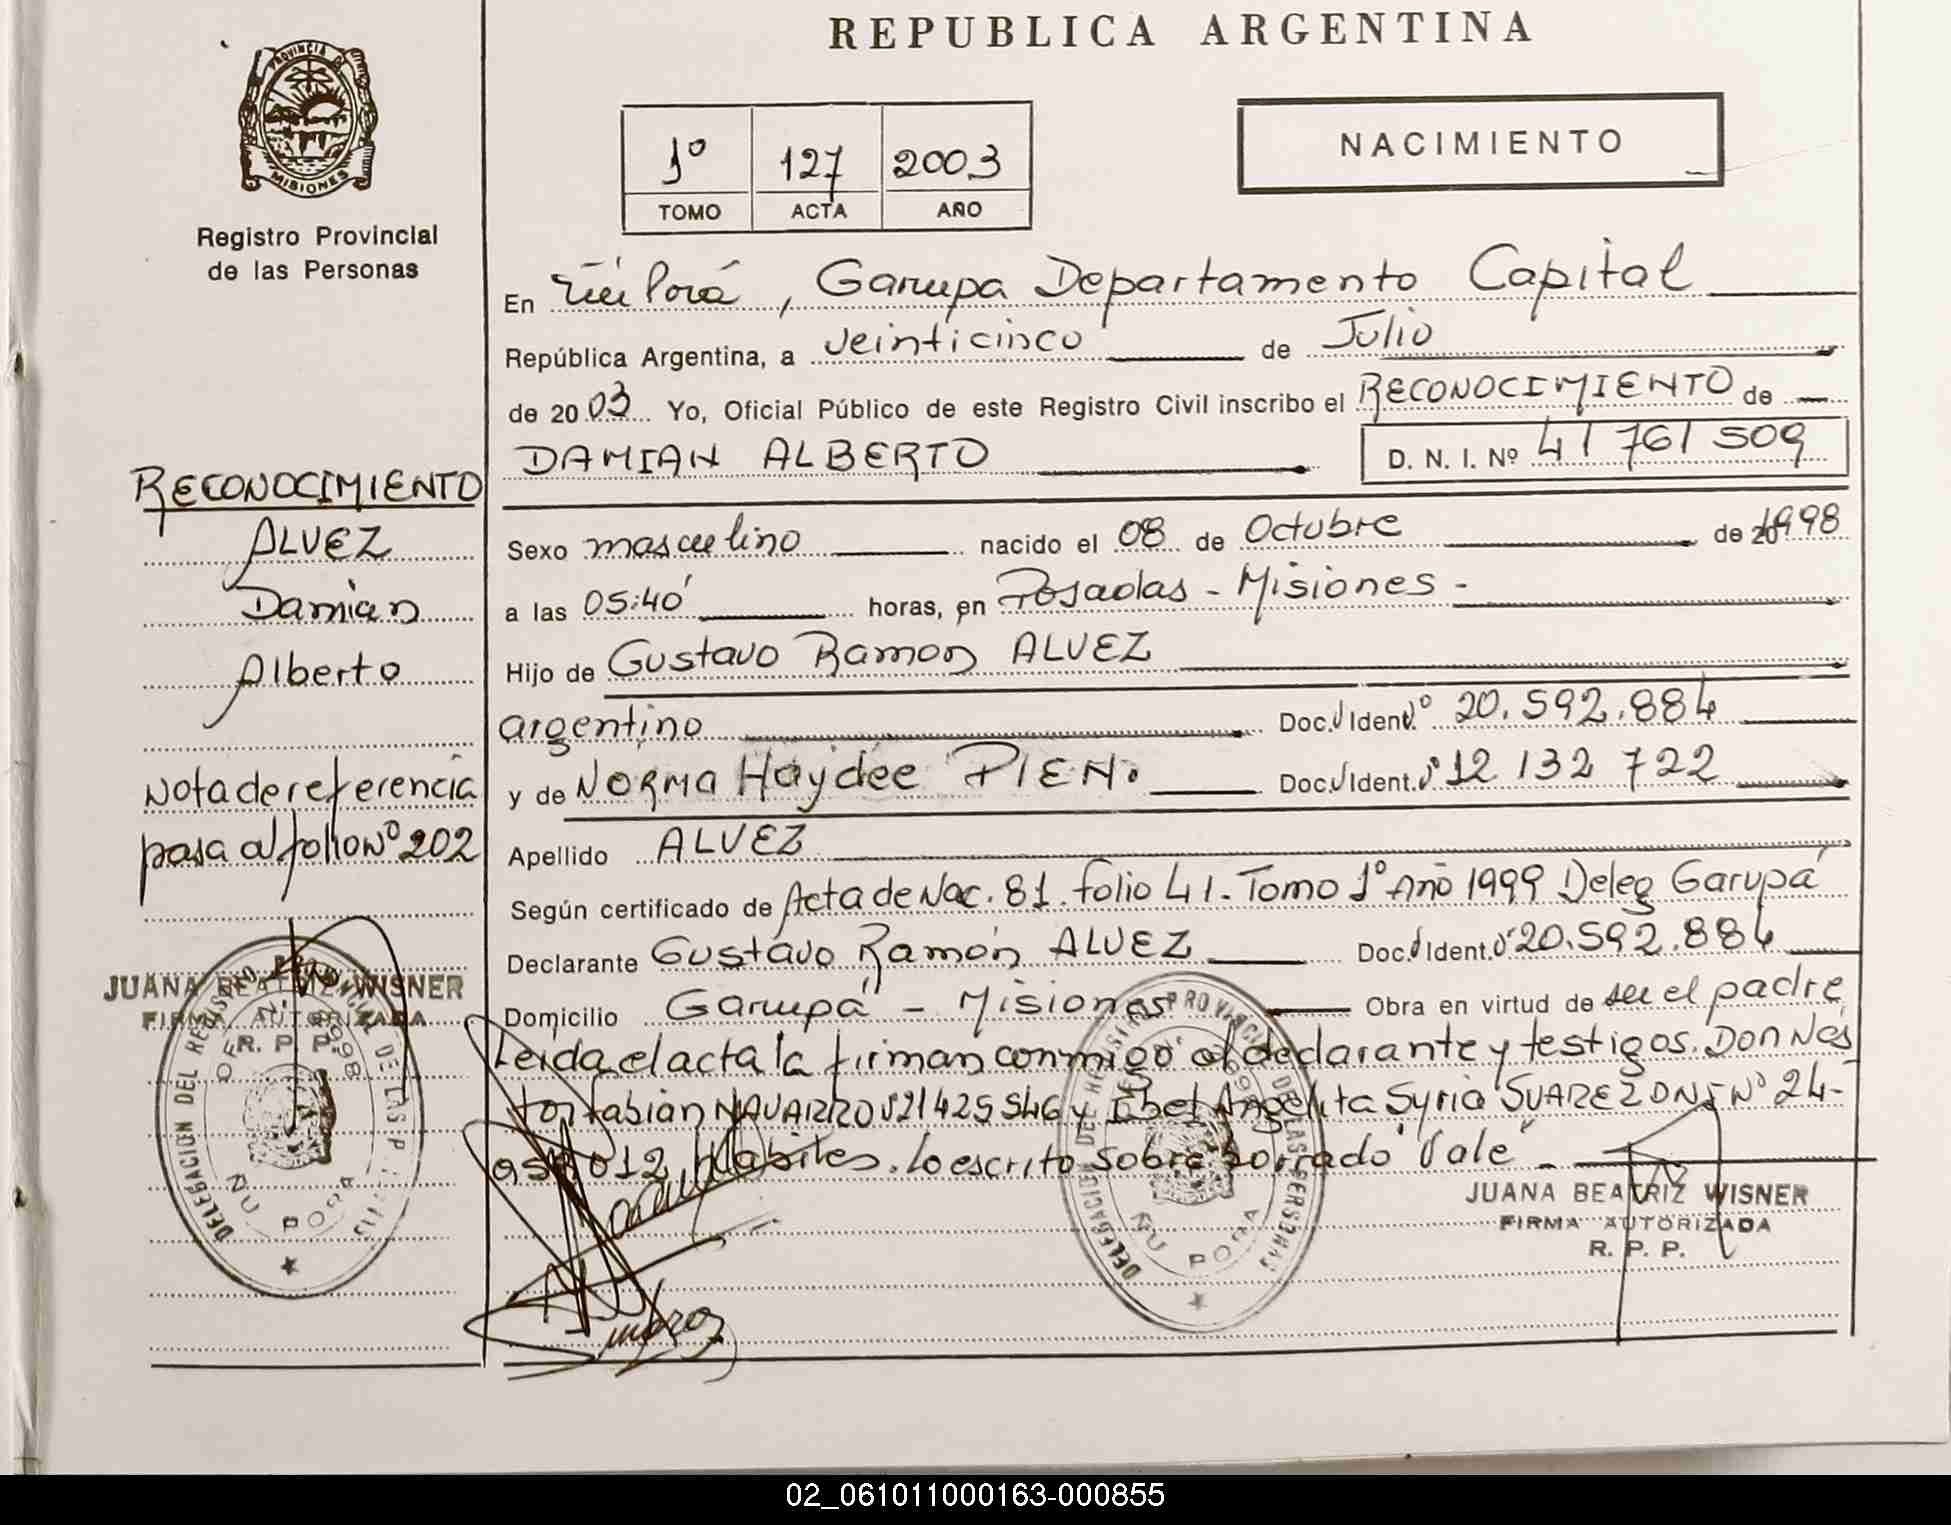 REPUBLICA ARGENTINA
PROVINCIA DE
MISIONES
Registro Provincial
de las Personas
1º 127 2003
TOMO ACTA AÑO
NACIMIENTO
En Ñu Porá, Garupa Departamento Capital
República Argentina, a veinticinco de Julio
de 2003 Yo, Oficial Público de este Registro Civil inscribo el RECONOCIMIENTO de
DAMIAN ALBERTO D. N. I. Nº 41 761 509
Sexo masculino nacido el 08 de Octubre de 1998
a las 05:40 horas, en Posadas - Misiones -
Hijo de Gustavo Ramon ALVEZ
argentino Doc. Ident. Nº 20.592.884
y de NORMA Haydée PIEN. Doc. Ident. Nº 12 132 722
Apellido ALVEZ
Según certificado de Acta de Nac. 81. folio 41. Tomo 1º Año 1999 Deleg Garupá
Declarante Gustavo Ramón ALVEZ Doc. Ident. Nº 20.592.884
Domicilio Garupá - Misiones Obra en virtud de ser el padre
Leida el acta la firman conmigo el declarante y testigos. Don Nes
tor fabian NAVARRO 21425546 y Angelita Syria SUAREZ DNI Nº 24-
012, Habiles. Lo escrito sobre borrado "Vale" -
JUANA BEATRIZ WISNER
FIRMA AUTORIZADA
R. P. P.
RECONOCIMIENTO
ALVEZ
Damian
Alberto
Nota de referencia
pasa al folio Nº 202
JUANA BEATRIZ WISNER
FIRMA AUTORIZADA
R. P. P.
DELEGACION DEL REGISTRO PROVINCIAL DE LAS PERSONAS
ÑU PORA
DELEGACION DEL REGISTRO PROVINCIAL DE LAS PERSONAS
ÑU PORA
02_061011000163-000855